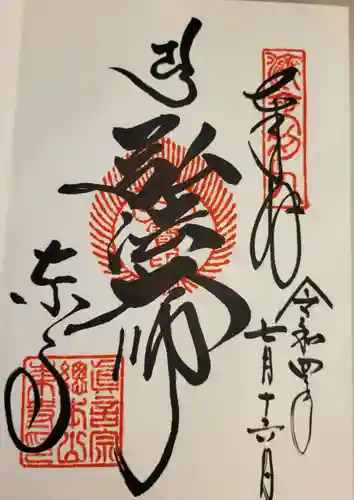 奉拝
令和四年
七月十六日
弘法大師
東寺
真言宗
總本山
東寺印